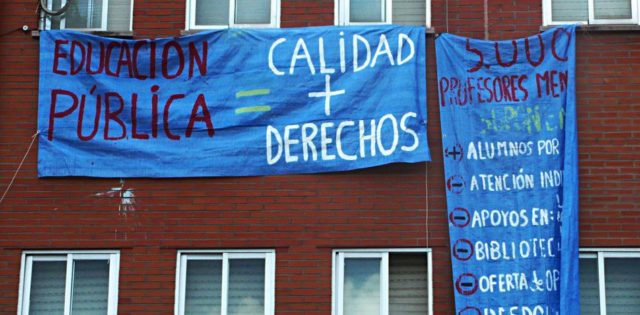 EDUCACIÓN
PÚBLICA
=
CALIDAD
+
DERECHOS
5.000
PROFESORES MEN
+ ALUMNOS POR
- ATENCIÓN IND
- APOYOS EN:
- BIBLIOTEC
- OFERTA de OP